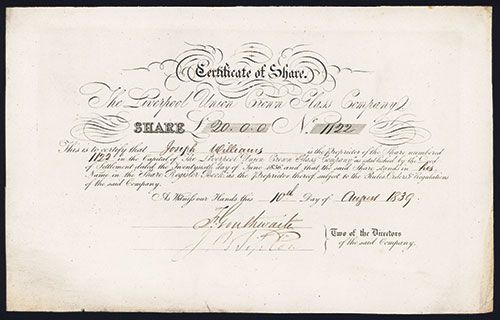 Certificate of Share.
The Liverpool Union Crown Glass Company
SHARE £ 20.0.0 No. 1122
This is to certify that Joseph Williams is the Proprietor of the Share numbered
1122 in the Capital of The Liverpool Union Crown Glass Company as established by the Deed
of Settlement dated the day of June 1836 and that the said Share stands in his
Name in the Share Register Book as the Proprietor thereof subject to the Rules Orders & Regulations
of the said Company.
As Witness our Hands this 10th Day of August 1839
Two of the Directors
of the said Company.